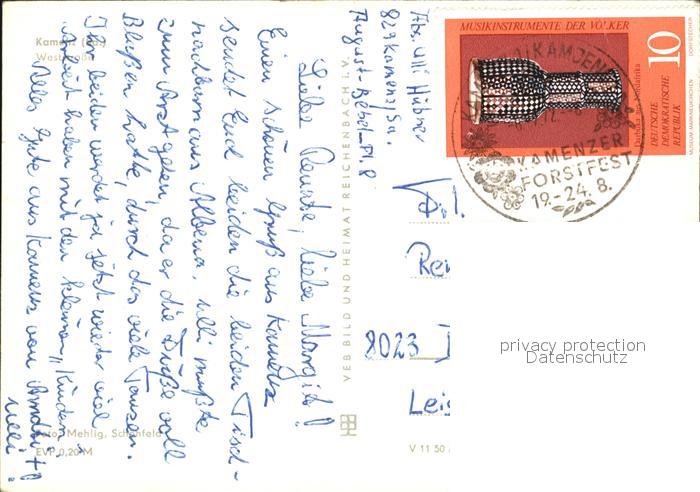 Kamenz (Sa.)
Liebe Renate, liebe Margit!
Einen schönen Gruß aus Kamenz
sendet Euch beiden die beiden Tisch-
nachbarn aus Albena. Ulli mußte
zum Arzt gehen, da er die Füße voll
Blasen hatte, durch das viele Tanzen.
Ihr beiden werdet ja jetzt wieder viel
Arbeit haben mit den kleinen „Kindern“.
Alles Gute aus Kamenz von
Ulli.
Foto: Mehlig, Schönfeld
EVP 0,20 M
VEB BILD UND HEIMAT REICHENBACH i. V.
V 11 50
Abs. Ulli Hübner
829 Kamenz/Sa.
August-Bebel-Pl. 8
8023
MUSIKINSTRUMENTE DER VÖLKER
10
DEUTSCHE
DEMOKRATISCHE
REPUBLIK
KAMENZER
FORSTFEST
19.-24.8.
privacy protection
Datenschutz